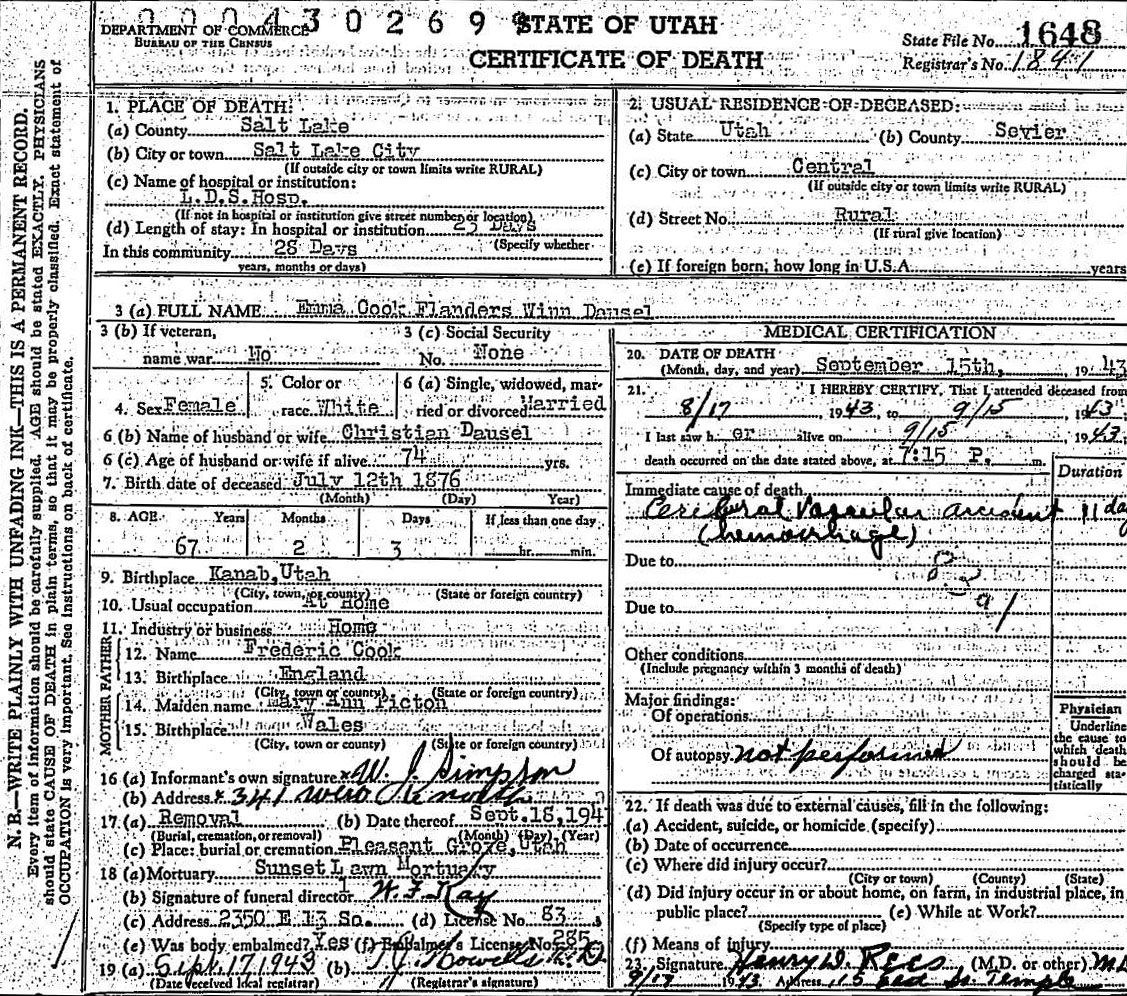 0 0 0 4 3 0 2 6 9
STATE OF UTAH
CERTIFICATE OF DEATH
DEPARTMENT OF COMMERCE
BUREAU OF THE CENSUS
State File No. 1648
Registrar's No. 1841
N. B.—WRITE PLAINLY WITH UNFADING INK—THIS IS A PERMANENT RECORD.
Every item of information should be carefully supplied. AGE should be stated EXACTLY. PHYSICIANS
should state CAUSE OF DEATH in plain terms, so that it may be properly classified. Exact statement of
OCCUPATION is very important. See instructions on back of certificate.
1. PLACE OF DEATH:
(a) County Salt Lake
(b) City or town Salt Lake City
(If outside city or town limits write RURAL)
(c) Name of hospital or institution:
L.D.S.Hosp.
(If not in hospital or institution give street number or location)
(d) Length of stay: In hospital or institution Days
(Specify whether
In this community 28 Days
years, months or days)
2. USUAL RESIDENCE OF DECEASED:
(a) State Utah (b) County Sevier
(c) City or town Central
(If outside city or town limits write RURAL)
(d) Street No. Rural
(If rural give location)
(e) If foreign born, how long in U.S.A. years
3 (a) FULL NAME Emma Cook Flanders Winn Dausel
3 (b) If veteran, name war No
3 (c) Social Security No. None
4. Sex Female
5. Color or race White
6 (a) Single, widowed, married or divorced Married
6 (b) Name of husband or wife Christian Dausel
6 (c) Age of husband or wife if alive 74 yrs.
7. Birth date of deceased July 12th 1876
(Month) (Day) Year)
8. AGE Years Months Days If less than one day
67 2 3 hr. min.
9. Birthplace Kanab, Utah
(City, town, or county) (State or foreign country)
10. Usual occupation At Home
11. Industry or business Home
FATHER
12. Name Frederic Cook
13. Birthplace England
(City, town or county) (State or foreign country)
MOTHER
14. Maiden name Mary Ann Picton
15. Birthplace Wales
(City, town or county) (State or foreign country)
16 (a) Informant's own signature W. J. Simpson
(b) Address 341
17 (a) Removal (b) Date thereof Sept.18,194
(Burial, cremation, or removal) (Month) (Day) (Year)
(c) Place: burial or cremation Pleasant Grove, Utah
18 (a) Mortuary Sunset Lawn Mortuary
(b) Signature of funeral director W. F. Kay
(c) Address 2350 E 13 So. (d) License No. 83
(e) Was body embalmed? Yes (f) Embalmer's License No. 285
19 (a) Sept. 17 1943 (b)
(Date received local registrar) (Registrar's signature)
MEDICAL CERTIFICATION
20. DATE OF DEATH
(Month, day, and year) September 15th, 19 43
21. I HEREBY CERTIFY, That I attended deceased from
8/17 1943, to 9/15 1943.
I last saw h er alive on 9/15 1943.
death occurred on the date stated above, at 7:15 P. m.
Duration
Immediate cause of death
Cerebral Vascular accident 11 day
(hemorrhage)
Due to
Due to
Other conditions
(Include pregnancy within 3 months of death)
Major findings:
Of operations
Of autopsy not performed
Physician
Underline
the cause to
which death
should be
charged sta-
tistically
22. If death was due to external causes, fill in the following:
(a) Accident, suicide, or homicide (specify)
(b) Date of occurrence
(c) Where did injury occur?
(City or town) (County) (State)
(d) Did injury occur in or about home, on farm, in industrial place, in
public place? (e) While at Work?
(Specify type of place)
(f) Means of injury
23. Signature Henry D. Rees (M.D. or other) M.D
9/17 1943 Address 115 East So. Temple